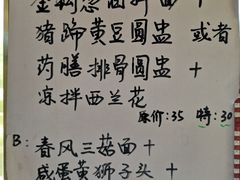 金钩葱油拌面 +
猪蹄黄豆圆盅 或者
药膳排骨圆盅 +
凉拌西兰花
原价:35 特:30
B:
春风三菇面 +
咸蛋黄狮子头 +